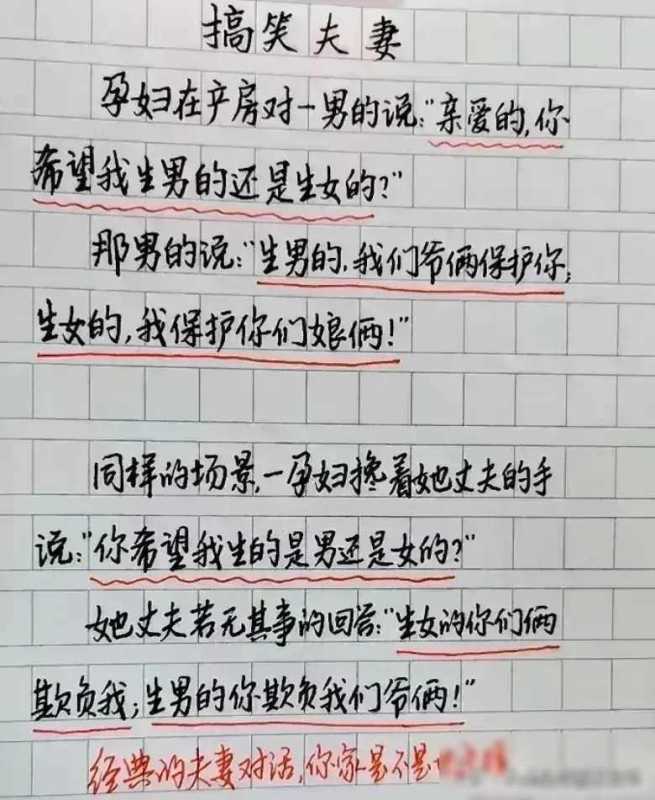 搞笑夫妻
孕妇在产房对一男的说:"亲爱的,你
希望我生男的还是生女的?"
那男的说:"生男的,我们爷俩保护你;
生女的,我保护你们娘俩!"
同样的场景,一孕妇搀着她丈夫的手
说:"你希望我生的是男还是女的?"
她丈夫若无其事的回答:"生女的你们俩
欺负我;生男的你欺负我们爷俩!"
经典的夫妻对话,你家是不是